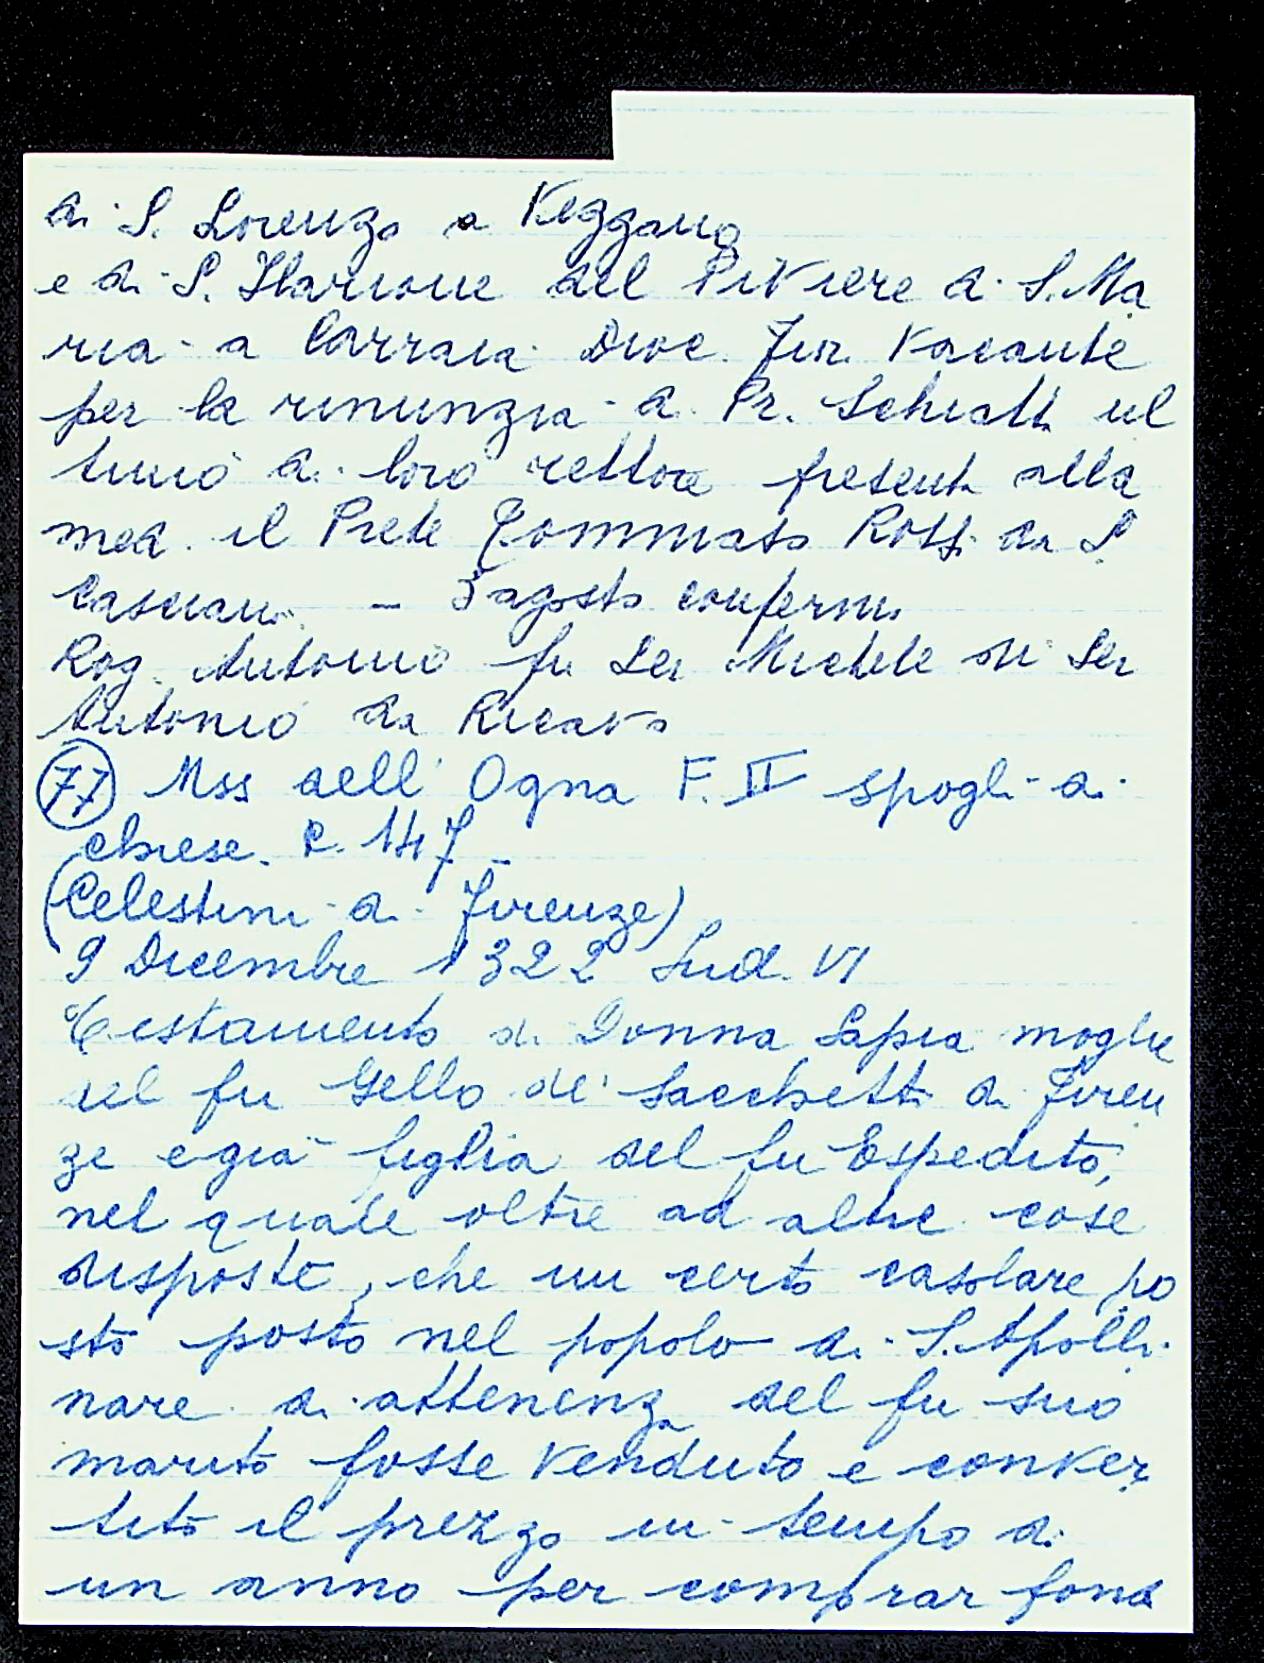 di S. Lorenzo a Vezzano
e di S. Ilarione del Piviere di S. Ma
ria a Carraia Dioc. Fir. Vacante
per la rinunzia di Pr. Schiatti ul
timo di loro rettore presenti alla
med. il Prete Tommaso Rossi da S.
Casciano. – 5 agosto conferm.
Rog. Antonio fu Ser Michele di Ser
Antonio da Ricavo
77 Mss dell' Ogna F. II spogli di
chiese. C. 147 –
(Celestini di Firenze)
9 Dicembre 1322 Ind. VI
Testamento di Donna Lapia moglie
del fu Gello de' Sacchetti di Firen
ze e già figlia del fu Espedito,
nel quale oltre ad altre cose
disposte, che un certo casolare po
sto posto nel popolo di S. Apolli.
nare di attenenza del fu suo
marito fosse venduto e conver
tito il prezzo in tempo di
un anno per comprar fondi